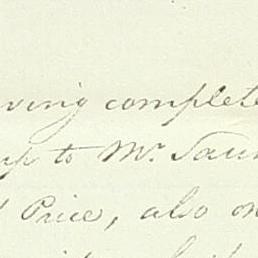 ving complete
up to Mr. Saun
Price, also on